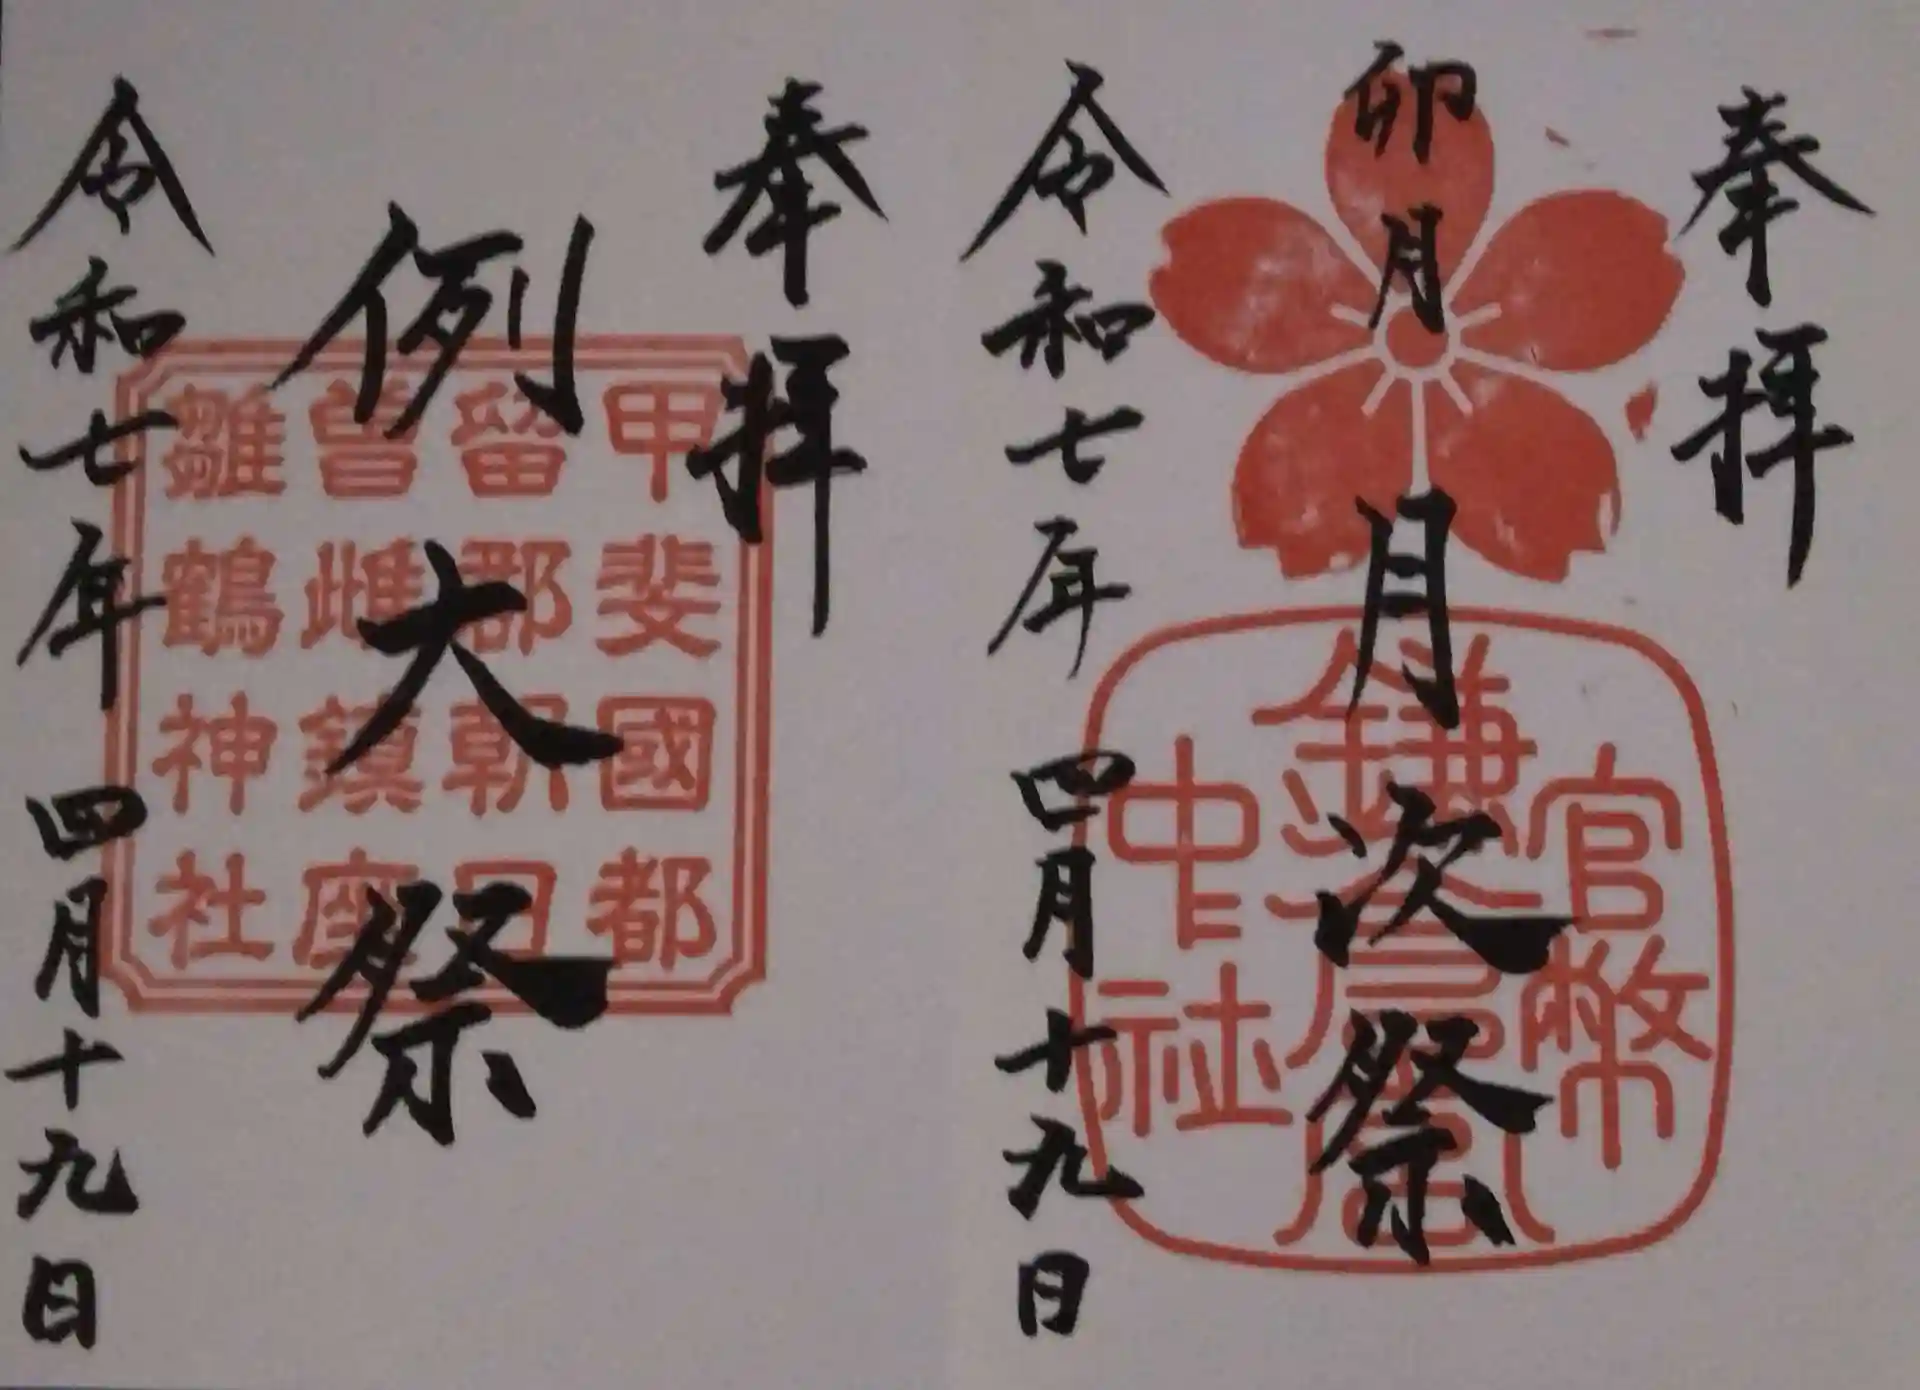 奉拝
卯月
月次祭
官幣
鎌倉宮
中社
令和七年四月十九日
奉拝
例大祭
甲斐國都
留郡朝日
曽雌鎮座
雛鶴神社
令和七年四月十九日